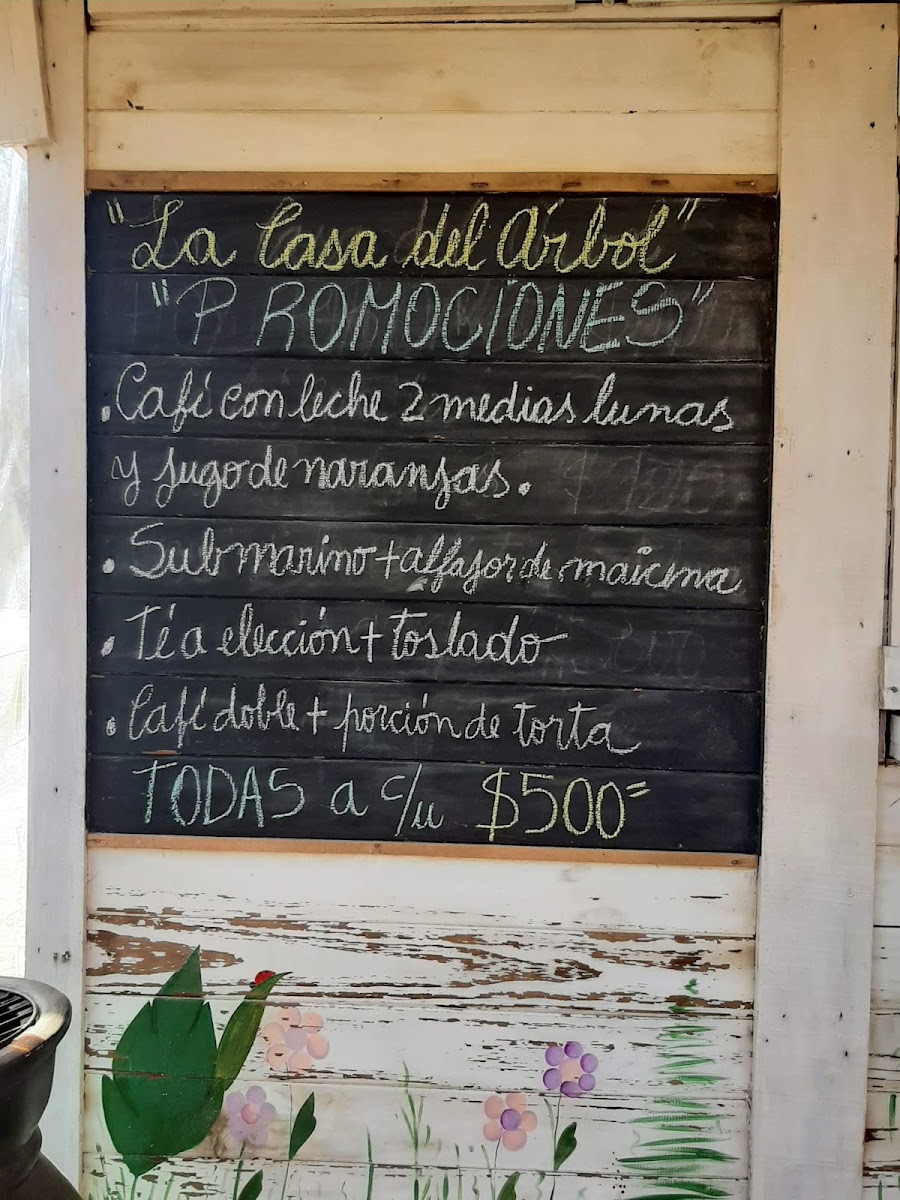 "La Casa del Árbol"
"PROMOCIONES"
.Café con leche 2 medias lunas
y jugo de naranjas.
.Submarino + alfajor de maicena
.Té a elección + toslado
.Café doble + porción de torta
TODAS a c/u $500=